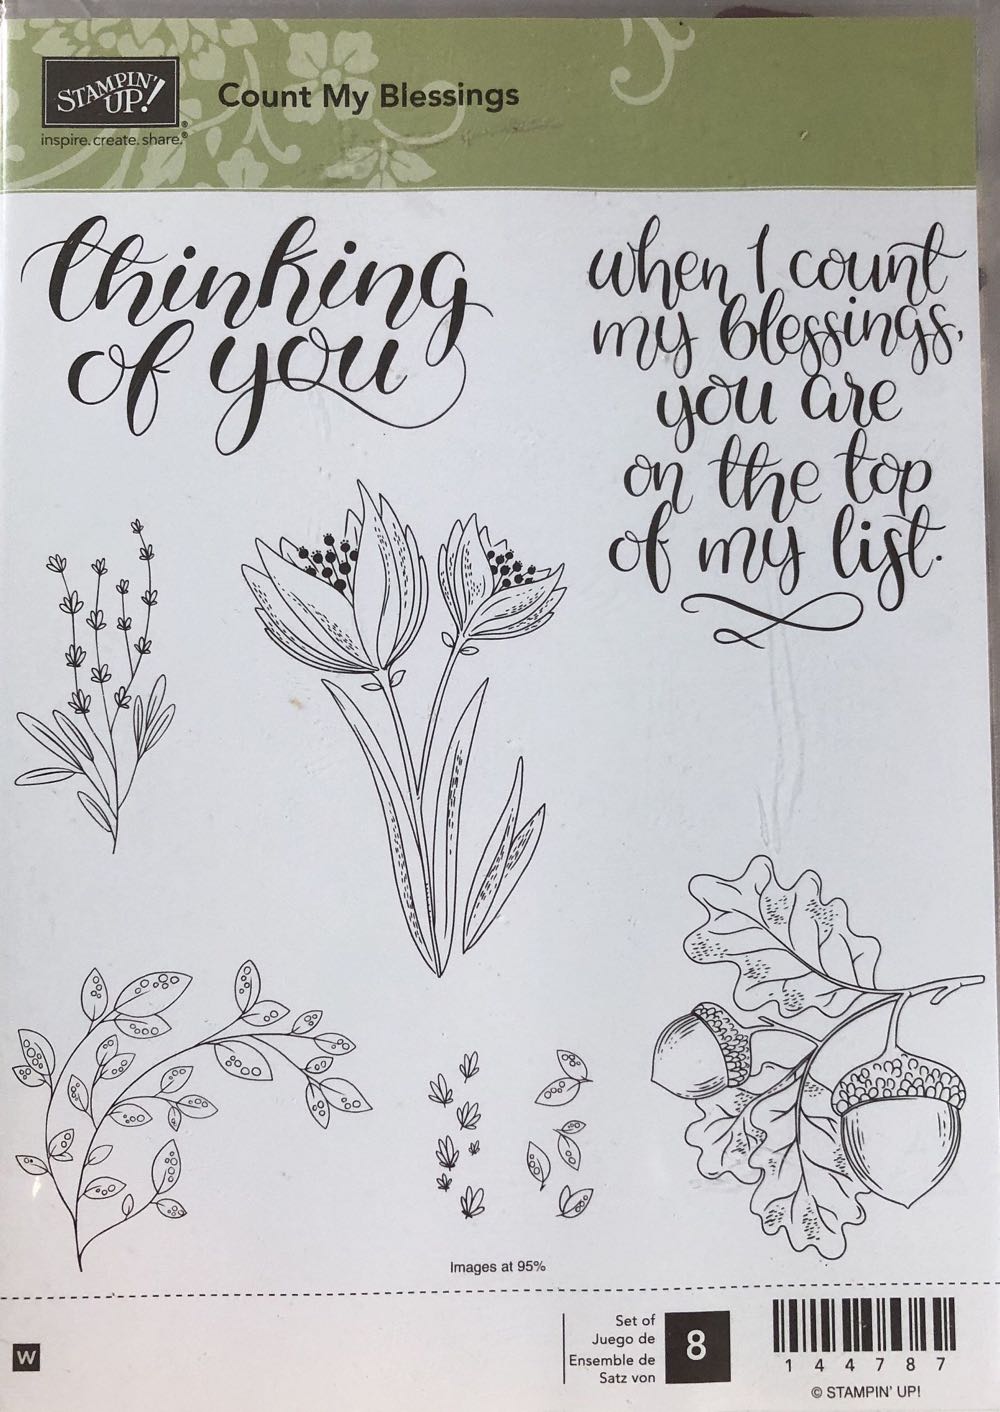 STAMPIN' UP!®
inspire. create. share.®
Count My Blessings
thinking
of you
when I count
my blessings,
you are
on the top
of my list.
Images at 95%
W
Set of
Juego de
Ensemble de
Satz von
8
144787
© STAMPIN' UP!